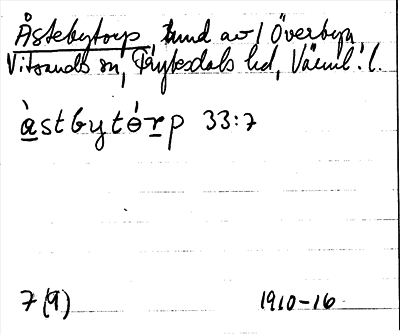 Åstebytorp (und av) Överbyn
Vitsands sn, Fryksdals hd, Värml. l.
àstbytórp 33:7
7(9) 1910-16